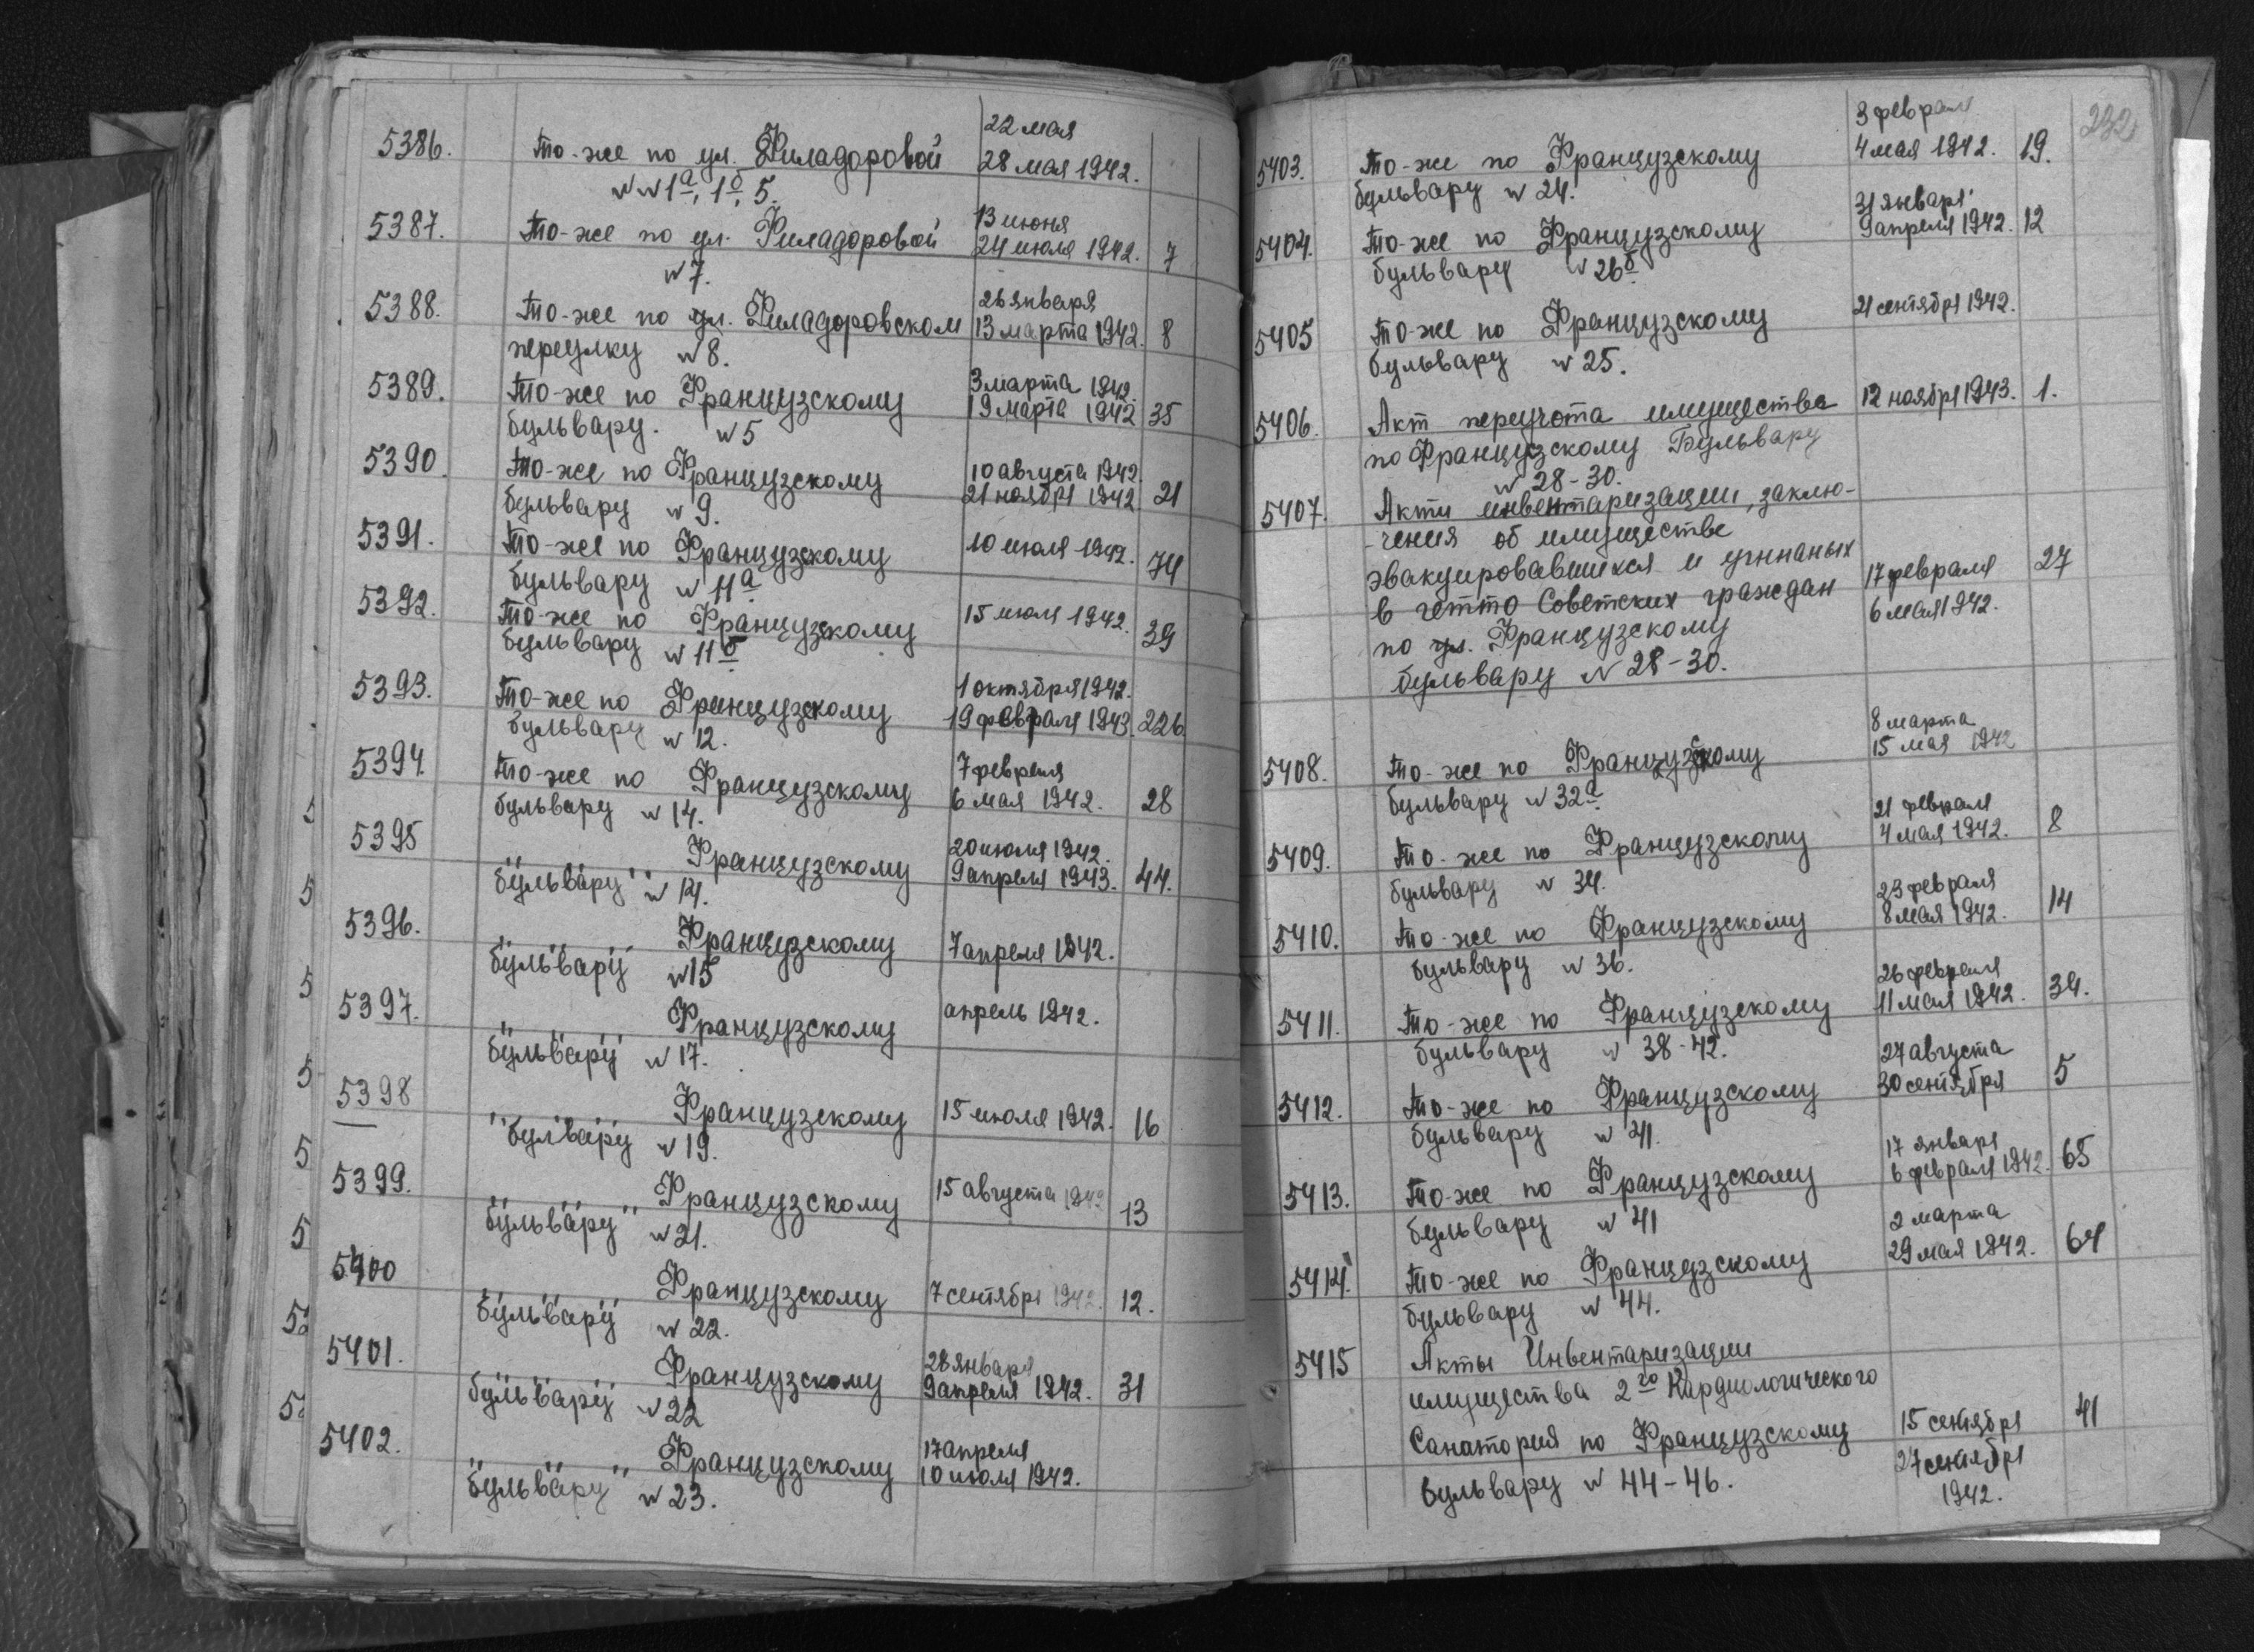 5386. То-же по ул. Филадоровой 22 мая
28 мая 1942.
№№ 1а, 1б, 5.
5387. То-же по ул. Филадоровой 13 июня
24 июля 1942. 7
№ 7.
5388. То-же по ул. Филадоровском 26 января
13 марта 1942. 8
переулку № 8.
5389. То-же по Французскому 3 марта 1942.
бульвару. № 5 19 марта 1942 35
5390. То-же по Французскому 10 августа 1942.
бульвару № 9. 21 ноября 1942 21
5391. То-же по Французскому 10 июля 1942. 74
бульвару № 11а
5392. То-же по Французскому 15 июля 1942. 39
бульвару № 11б
5393. То-же по Французскому 1 октября 1942.
бульвару № 12. 19 февраля 1943. 226
5394. То-же по Французскому 7 февраля
бульвару № 14. 6 мая 1942. 28
5395 " " " Французскому 20 июля 1942.
бульвару № 14. 9 апреля 1943. 44.
5396. " " " Французскому 7 апреля 1942.
бульвару № 15
5397. " " " Французскому апрель 1942.
бульвару № 17.
5398 " " " Французскому 15 июля 1942. 16
булвару № 19.
5399. " " " Французскому 15 августа 1942 13
бульвару № 21.
5400 " " " Французскому 7 сентября 1942. 12.
бульвару № 22.
5401. " " " Французскому 28 января
бульвару № 22 9 апреля 1942. 31
5402. " " " Французскому 17 апреля
бульвару № 23. 10 июля 1942.
232
5403. То-же по Французскому 3 февраля
4 мая 1942. 19.
бульвару № 24.
5404. То-же по Французскому 31 января
9 апреля 1942. 12
бульвару № 26б
5405 То-же по Французскому 21 сентября 1942.
бульвару № 25.
5406. Акт переучота имущества 12 ноября 1943. 1.
по Французскому Бульвару
№ 28-30.
5407. Акти инвентаризации, заклю-
-чения об имуществе
эвакуировавшихся и угннаных
в гетто Советских граждан 17 февраля 27
6 мая 1942.
по ул. Французскому
бульвару № 28-30.
5408. То-же по Французскому 8 марта
15 мая 1942
бульвару № 32а.
5409. То-же по Французскому 21 февраля
4 мая 1942. 8
бульвару № 34.
5410. То-же по Французскому 23 февраля
8 мая 1942. 14
бульвару № 36.
5411. То-же по Французскому 26 февраля
11 мая 1942. 34.
бульвару № 38-42.
5412. То-же по Французскому 27 августа
30 сентября 5
бульвару № 41.
5413. То-же по Французскому 17 января
6 февраля 1942. 65
бульвару № 41
5414. То-же по Французскому 2 марта
29 мая 1942. 64
бульвару № 44.
5415 Акты Инвентаризации
имущества 2го Кардиологического
Санатория по Французскому 15 сентября 41
бульвару № 44-46. 27 сентября
1942.